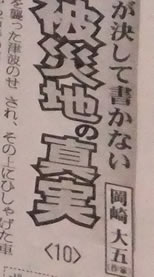 が決して書かない
被災地の真実
〈10〉
岡崎大五
作家
を襲った津波のせ
され、その上にひしゃげた車